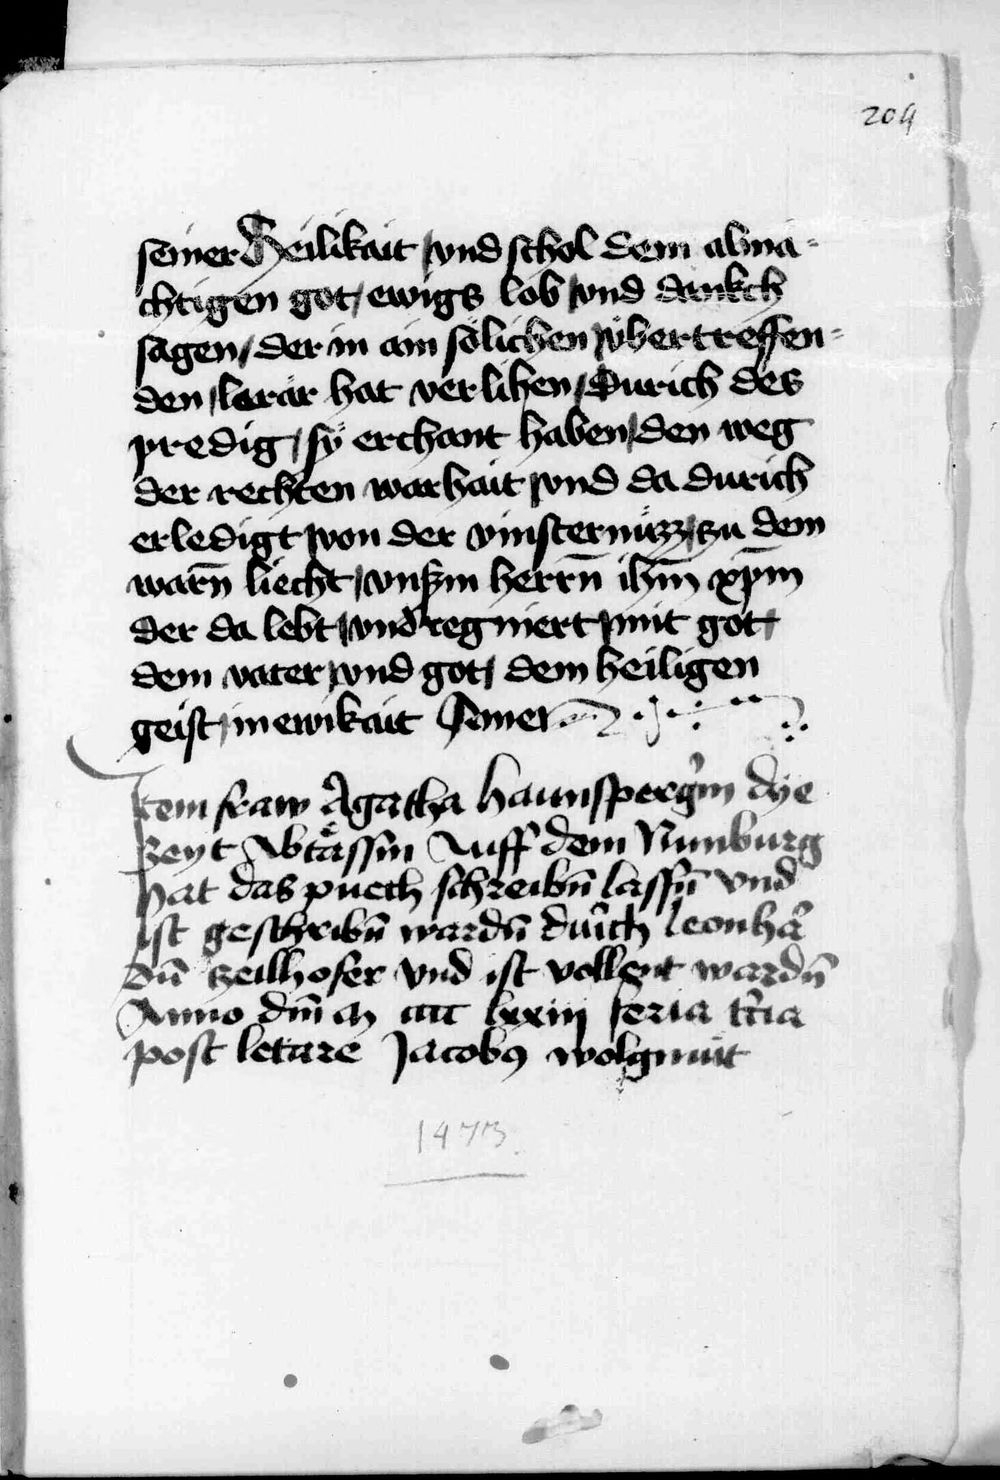 204
seiner Heilikait / vnd schol dem almä-
chtigen got / ewigs lob / vnd dankch
sagen / der in ain sölichen / vbertreffen-
den / lerär hat verlihen / Durich des
predig / sÿ erchant haben / den weg
der rechten warhait / vnd da durich
erledigt / von der vinsternüzz / zu dem
warn̄ liecht / vnßm herrn̄ ihm̄ xp̄m
der da lebt / vnd regniert / mit got /
dem vater / vnd got / dem heiligen
geist / in ewikait Amen
Item fraw Agatha haunspergin dye
zeyt Abtässin Auff dem Nunburg
hat das puech schreibn̄ lassn̄ vnd
ist geschribn̄ wardn̄ durch leonhar
dn̄ zeilhofer vnd ist vollent wardn̄
Anno dn̄i m cccc lxxiij feria tcia
post letare Jacobꝯ wolgmut
1473